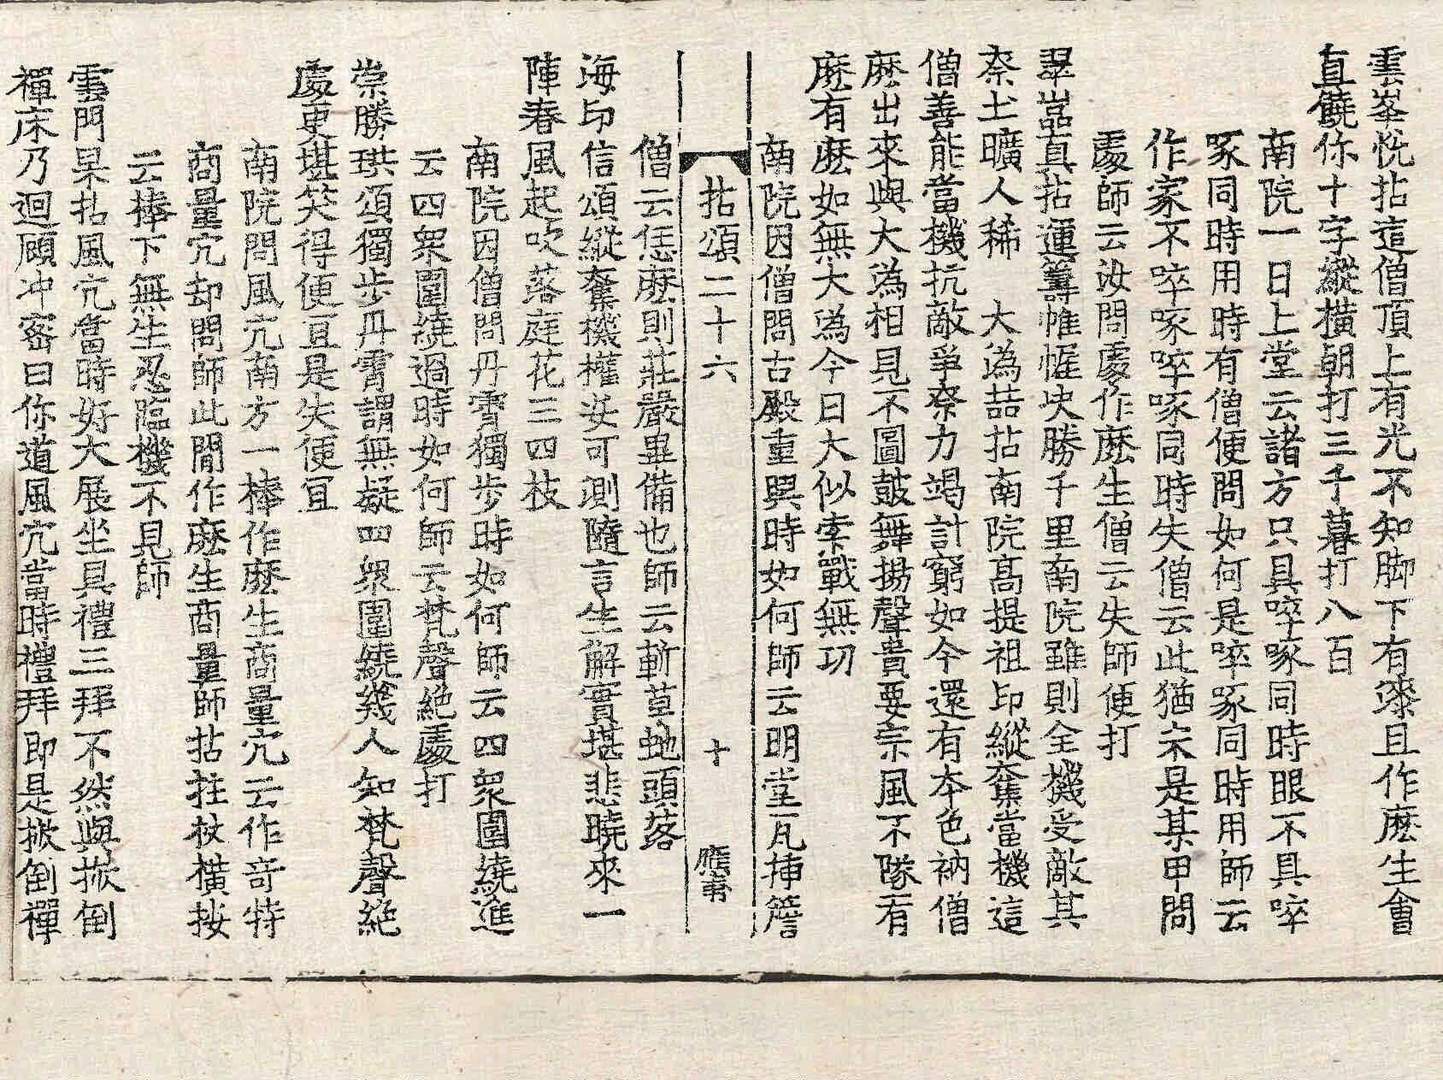 雲峯悅拈這僧頂上有光不知脚下有漆且作麽生會
直饒你十字縱橫朝打三千暮打八百
南院一日上堂云諸方只具啐啄同時眼不具啐
啄同時用時有僧便問如何是啐啄同時用師云
作家不啐啄啐啄同時失僧云此猶未是某甲問
處師云汝問處作麽生僧云失師便打
翠嵓真拈運籌帷幄决勝千里南院雖則全機受敵其
奈土曠人稀　大潙喆拈南院高提祖印縱奪當機這
僧善能當機抗敵爭奈力竭計窮如今還有本色衲僧
麽出來與大潙相見不圖鼓舞揚聲貴要宗風不墜有
麽有麽如無大潙今日大似索戰無功
南院因僧問古殿重興時如何師云明堂瓦揷簷
拈頌二十六　十
僧云恁麽則莊嚴畢備也師云斬草虵頭落
海印信頌縱奪機權妄可測隨言生解實堪悲曉來一
陣春風起吹落庭花三四枝
南院因僧問丹霄獨步時如何師云四衆圍繞進
云四衆圍繞過時如何師云梵聲絶處打
崇勝珙頌獨步丹霄謂無疑四衆圍繞幾人知梵聲絶
處更堪笑得便宜是失便宜
南院問風穴南方一棒作麽生商量穴云作竒特
商量穴却問師此間作麽生商量師拈拄杖橫按
云棒下無生忍臨機不見師
雲門杲拈風穴當時好大展坐具禮三拜不然與掀倒
禪床乃迴顧冲密曰你道風穴當時禮拜即是掀倒禪